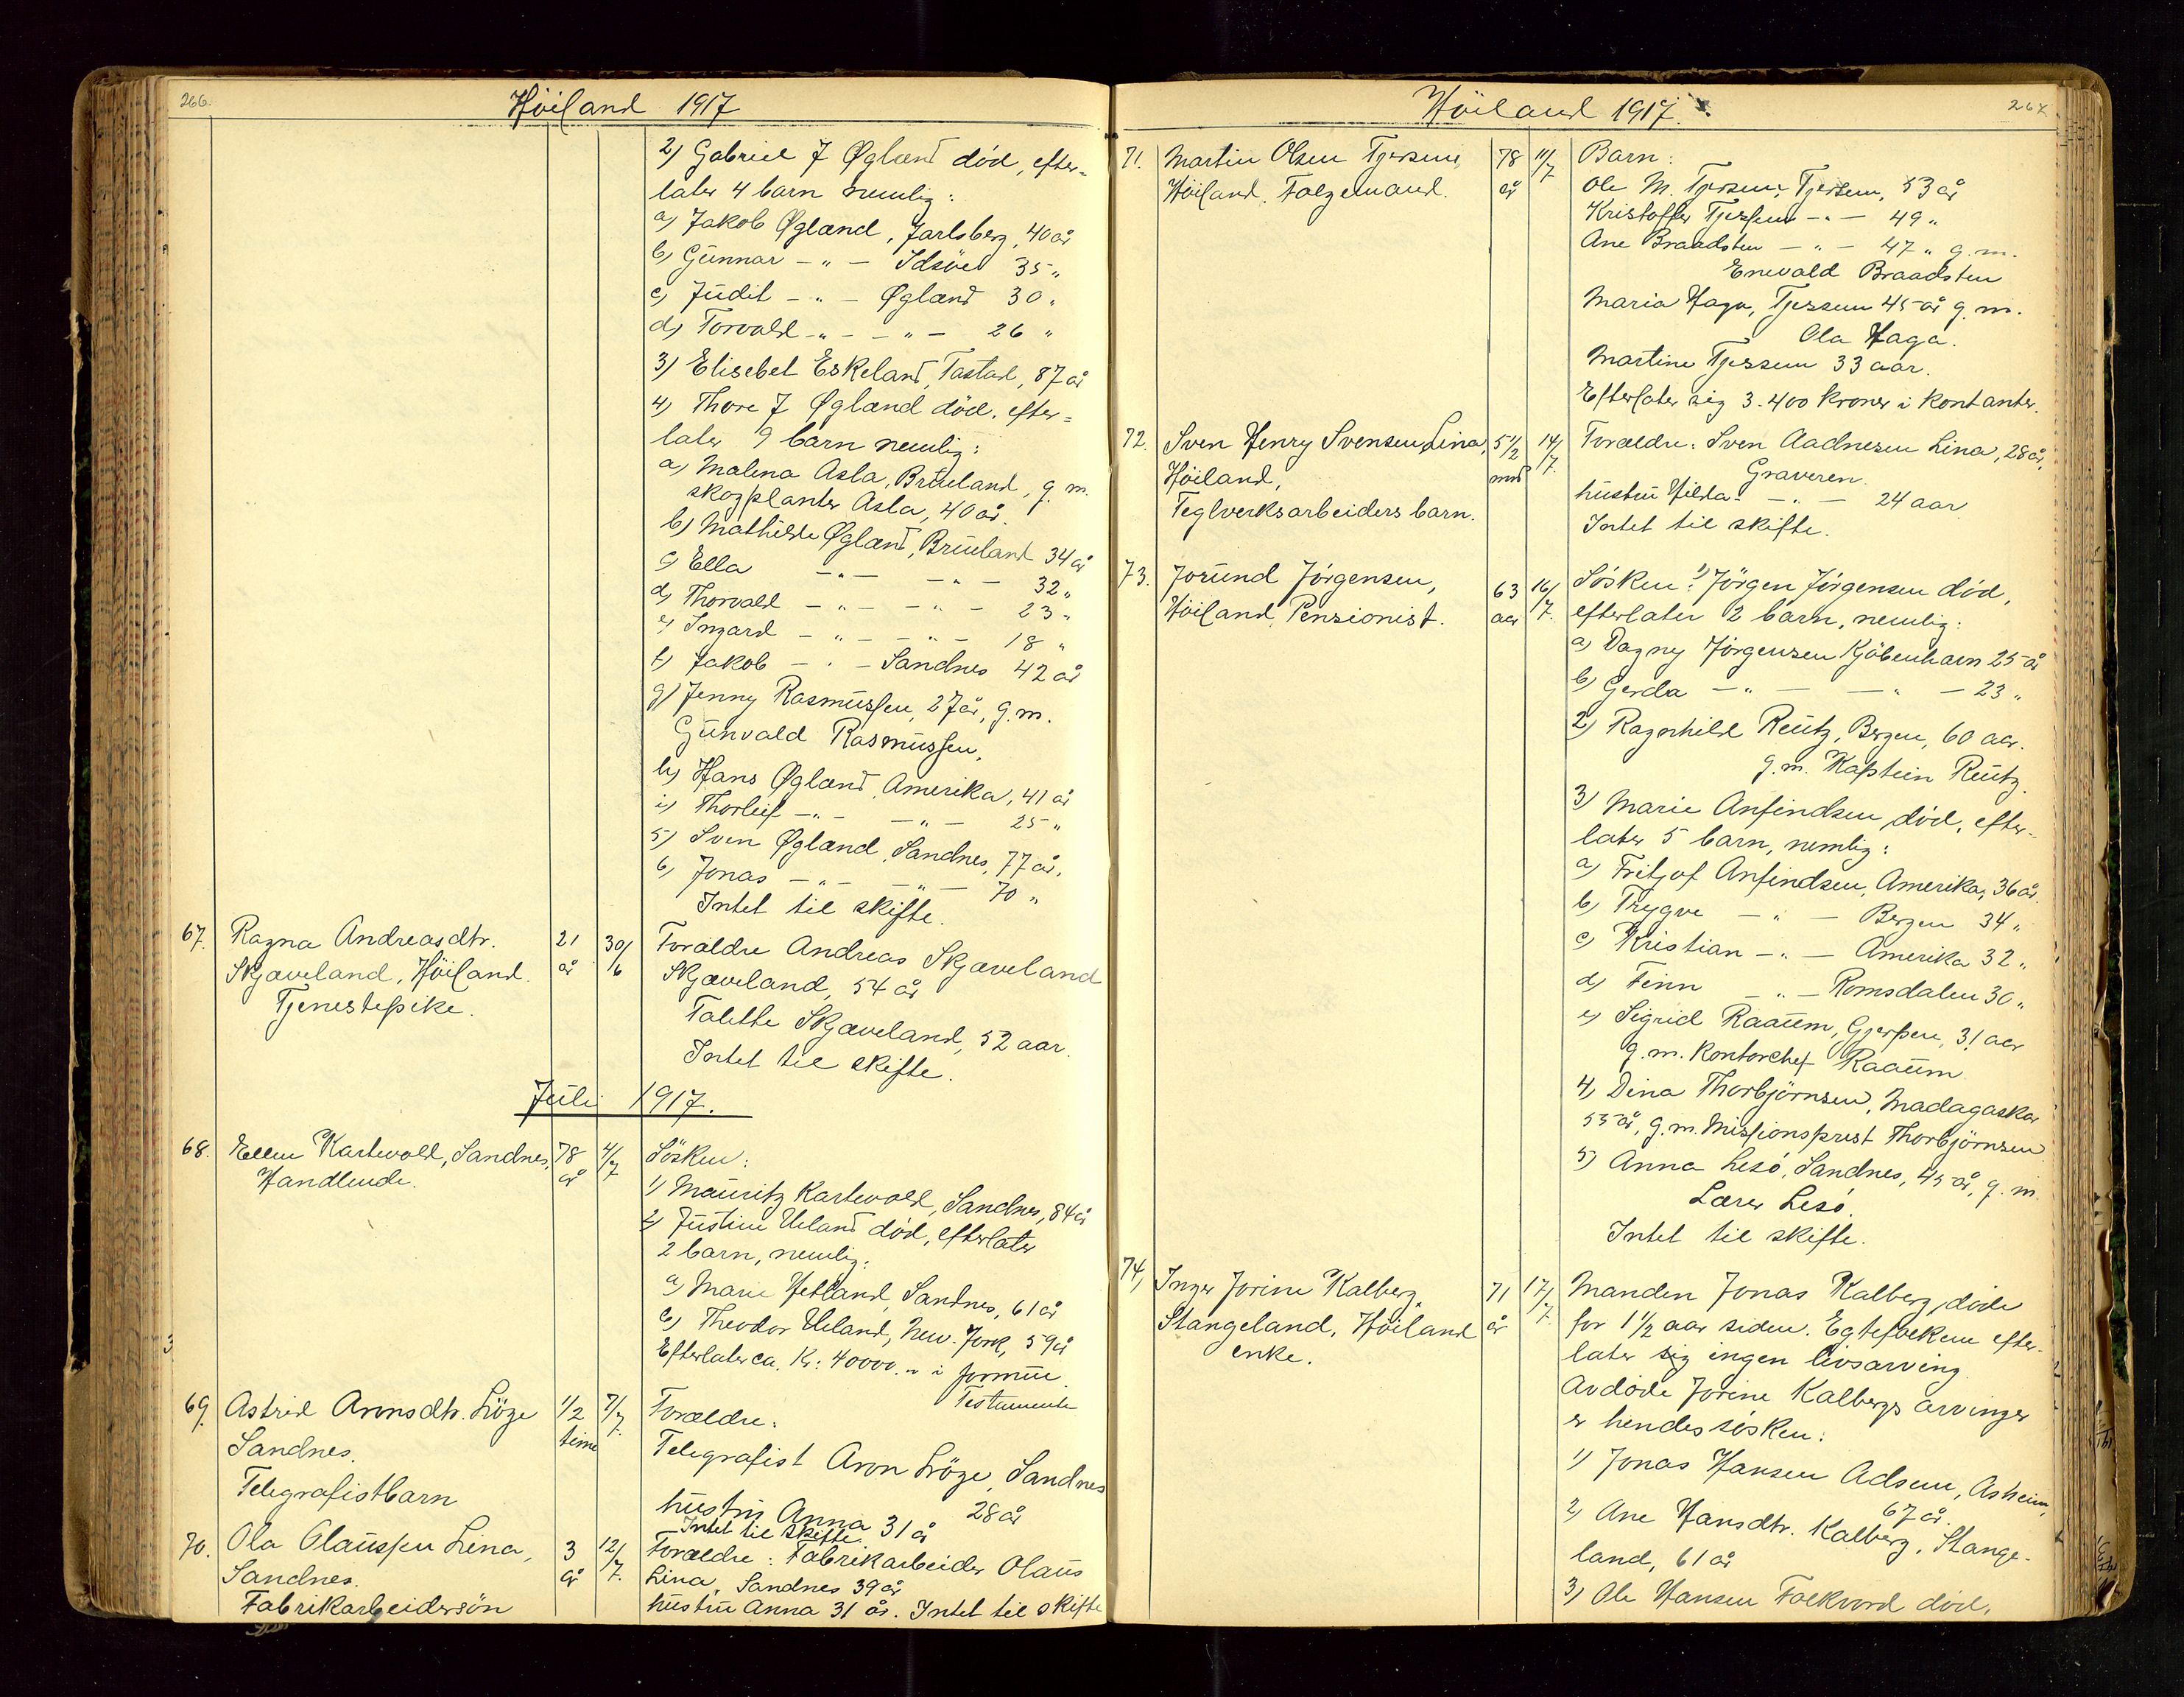 266.
Höiland 1917
2) Gabriel J Øglænd død, efter-
later 4 barn nemlig:
a) Jakob Øglænd, Jarlsberg, 40 år
b) Gunnar - " - Idsöe 35 "
c) Judit - " - Øglænd 30 "
d) Torvald - " - - " - 26 "
3) Elisebet Eskeland, Tastad, 87 år
4) Thore J Øglænd död, efter=
later 9 barn nemlig:
a) Malena Asla, Brueland, g. m.
skogplanter Asla, 40 år.
b) Mathilde Øglænd, Brueland 34 år
c) Ella - " - - " - 32 "
d) Thorvald - " - - " - 23 "
e) Ingard - " - - " - 18 "
f) Jakob - " - Sandnes 42 år
g) Jenny Rasmussen, 27 år, g. m.
Gunvald Rasmussen,
h) Hans Øglænd, Amerika, 41 år
i) Thorleif - " - - " - 25 "
5) Sven Øglænd, Sandnes, 77 år.
6) Jonas - " - - " - 70 "
Intet til skifte.
67. Ragna Andreasdtr. 21 30/6 Forældre Andreas Skjæveland
Skjæveland, Höiland. år Skjæveland, 54 år
Tjenestepike. Talette Skjæveland, 52 aar.
Intet til skifte.
Juli 1917.
68. Ellen Kartevold, Sandnes, 78 4/7 Sösken:
Handlende. år 1) Mauritz Kartevold, Sandnes, 84 år
2) Justine Ueland död, efterlater
2 barn, nemlig:
a) Marie Hetland, Sandnes, 61 år
b) Theodor Ueland, New. York, 59 år
Efterlater ca. Kr: 40000.- i formue.
Testamente
69. Astrid Aronsdtr. Löge 1/2 7/7. Forældre:
Sandnes. time Telegrafist Aron Löge, Sandnes
Telegrafistbarn 28 år
hustru Anna 31 år
Intet til skifte.
70. Ola Olaussen Lina, 3 12/7. Forældre: Fabrikarbeider Olaus
Sandnes. år Lina, Sandnes 39 år
Fabrikarbeidersön hustru Anna 31 år. Intet til skifte
267
Höiland 1917.
71. Martin Olsen Tjessem, 78 11/7 Barn:
Höiland. Folgemand. år Ole M. Tjessem, Tjessem, 53 år
Kristoffer Tjessem - " - 49 "
Ane Braadsten - " - 47 " g. m.
Enevald Braadsten
Maria Haga, Tjessem 45 år g. m.
Ola Haga.
Martine Tjessem 33 aar.
Efterlater sig 3.400 kroner i kontanter.
72. Sven Henry Svensen, Lina, 5 1/2 14/7. Forældre: Sven Aadnesen Lina, 28 år,
Höiland, mnd Graveren.
Teglverksarbeiders barn. hustru Hilda - " - 24 aar
Intet til skifte.
73. Jorund Jörgensen, 63 16/7. Sösken: 1) Jörgen Jörgensen död,
Höiland, Pensionist. aar efterlater 2 barn, nemlig:
a) Dagny Jörgensen Kjöbenhavn 25 år
b) Gerda - " - - " - 23 "
2) Ragnhild Reutz, Bergen, 60 aar.
g. m. Kaptein Reutz.
3) Marie Anfindsen död, efter-
later 5 barn, nemlig:
a) Fritjof Anfindsen, Amerika, 36 år.
b) Trygve - " - Bergen 34 "
c) Kristian - " - Amerika 32 "
d) Finn - " - Romsdalen 30 "
e) Sigrid Raaum, Gjerpen, 31 aar
g. m. Kontorchef Raaum
4) Dina Thorbjörnsen, Madagaskar
53 år, g. m. Missionsprest Thorbjörnsen
5) Anna Lesö, Sandnes, 45 år, g. m.
Lærer Lesö.
Intet til skifte.
74, Inger Jorine Kalberg, 71 17/7. Manden Jonas Kalberg döde
Stangeland, Höiland år for 1 1/2 aar siden. Egtefolkene efter-
enke. later sig ingen livsarving
Avdöde Jorine Kalbergs arvinger
er hendes sösken:
1) Jonas Hansen Adsem, Asheim,
67 år.
2) Ane Hansdtr. Kalberg, Stange-
land, 61 år
3) Ole Hansen Folkvord död,